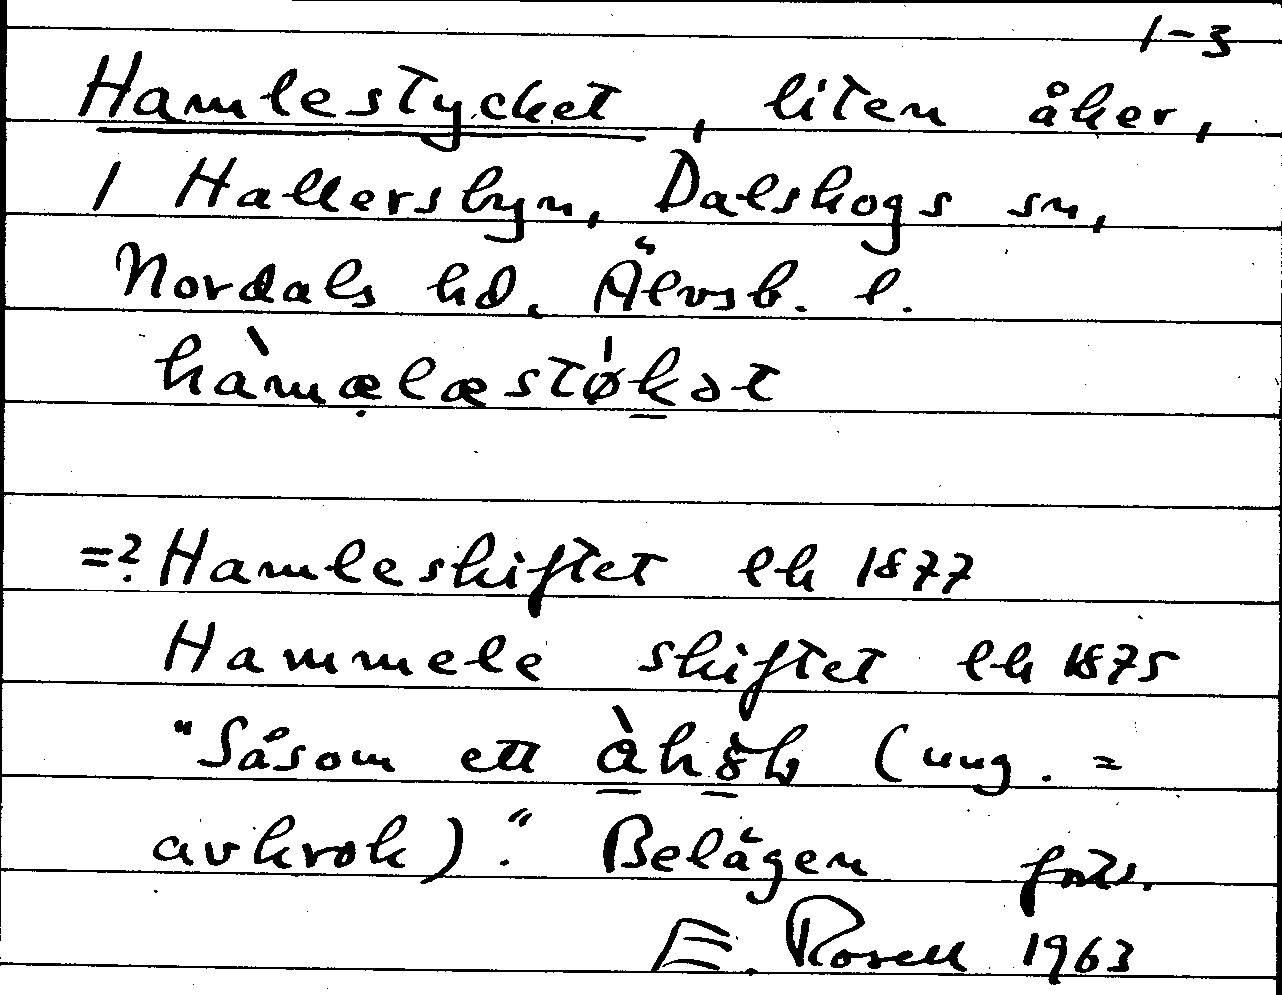 1-3
Hamlestycket, liten åker,
1 Hallersbyn, Dalskogs sn,
Nordals hd. Älvsb. l.
hàmælæstø̍kət
=? Hamleskiftet lk 1877
Hammele skiftet lk 1875
"Såsom ett (ung. =
avkrok)." Belägen forts.
E. Rosell 1963